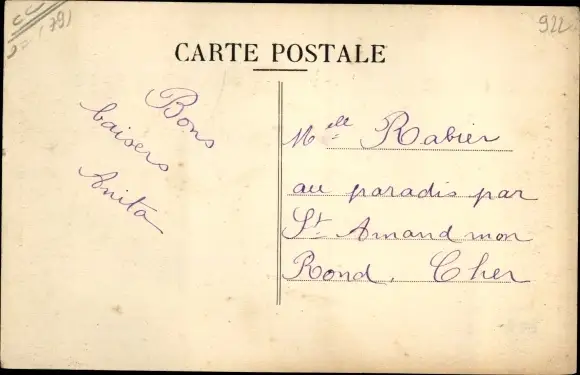 922
CARTE POSTALE
Bons
baisers
Anita
Melle Rabier
au paradis par
St. Amand mon
Rond. Cher